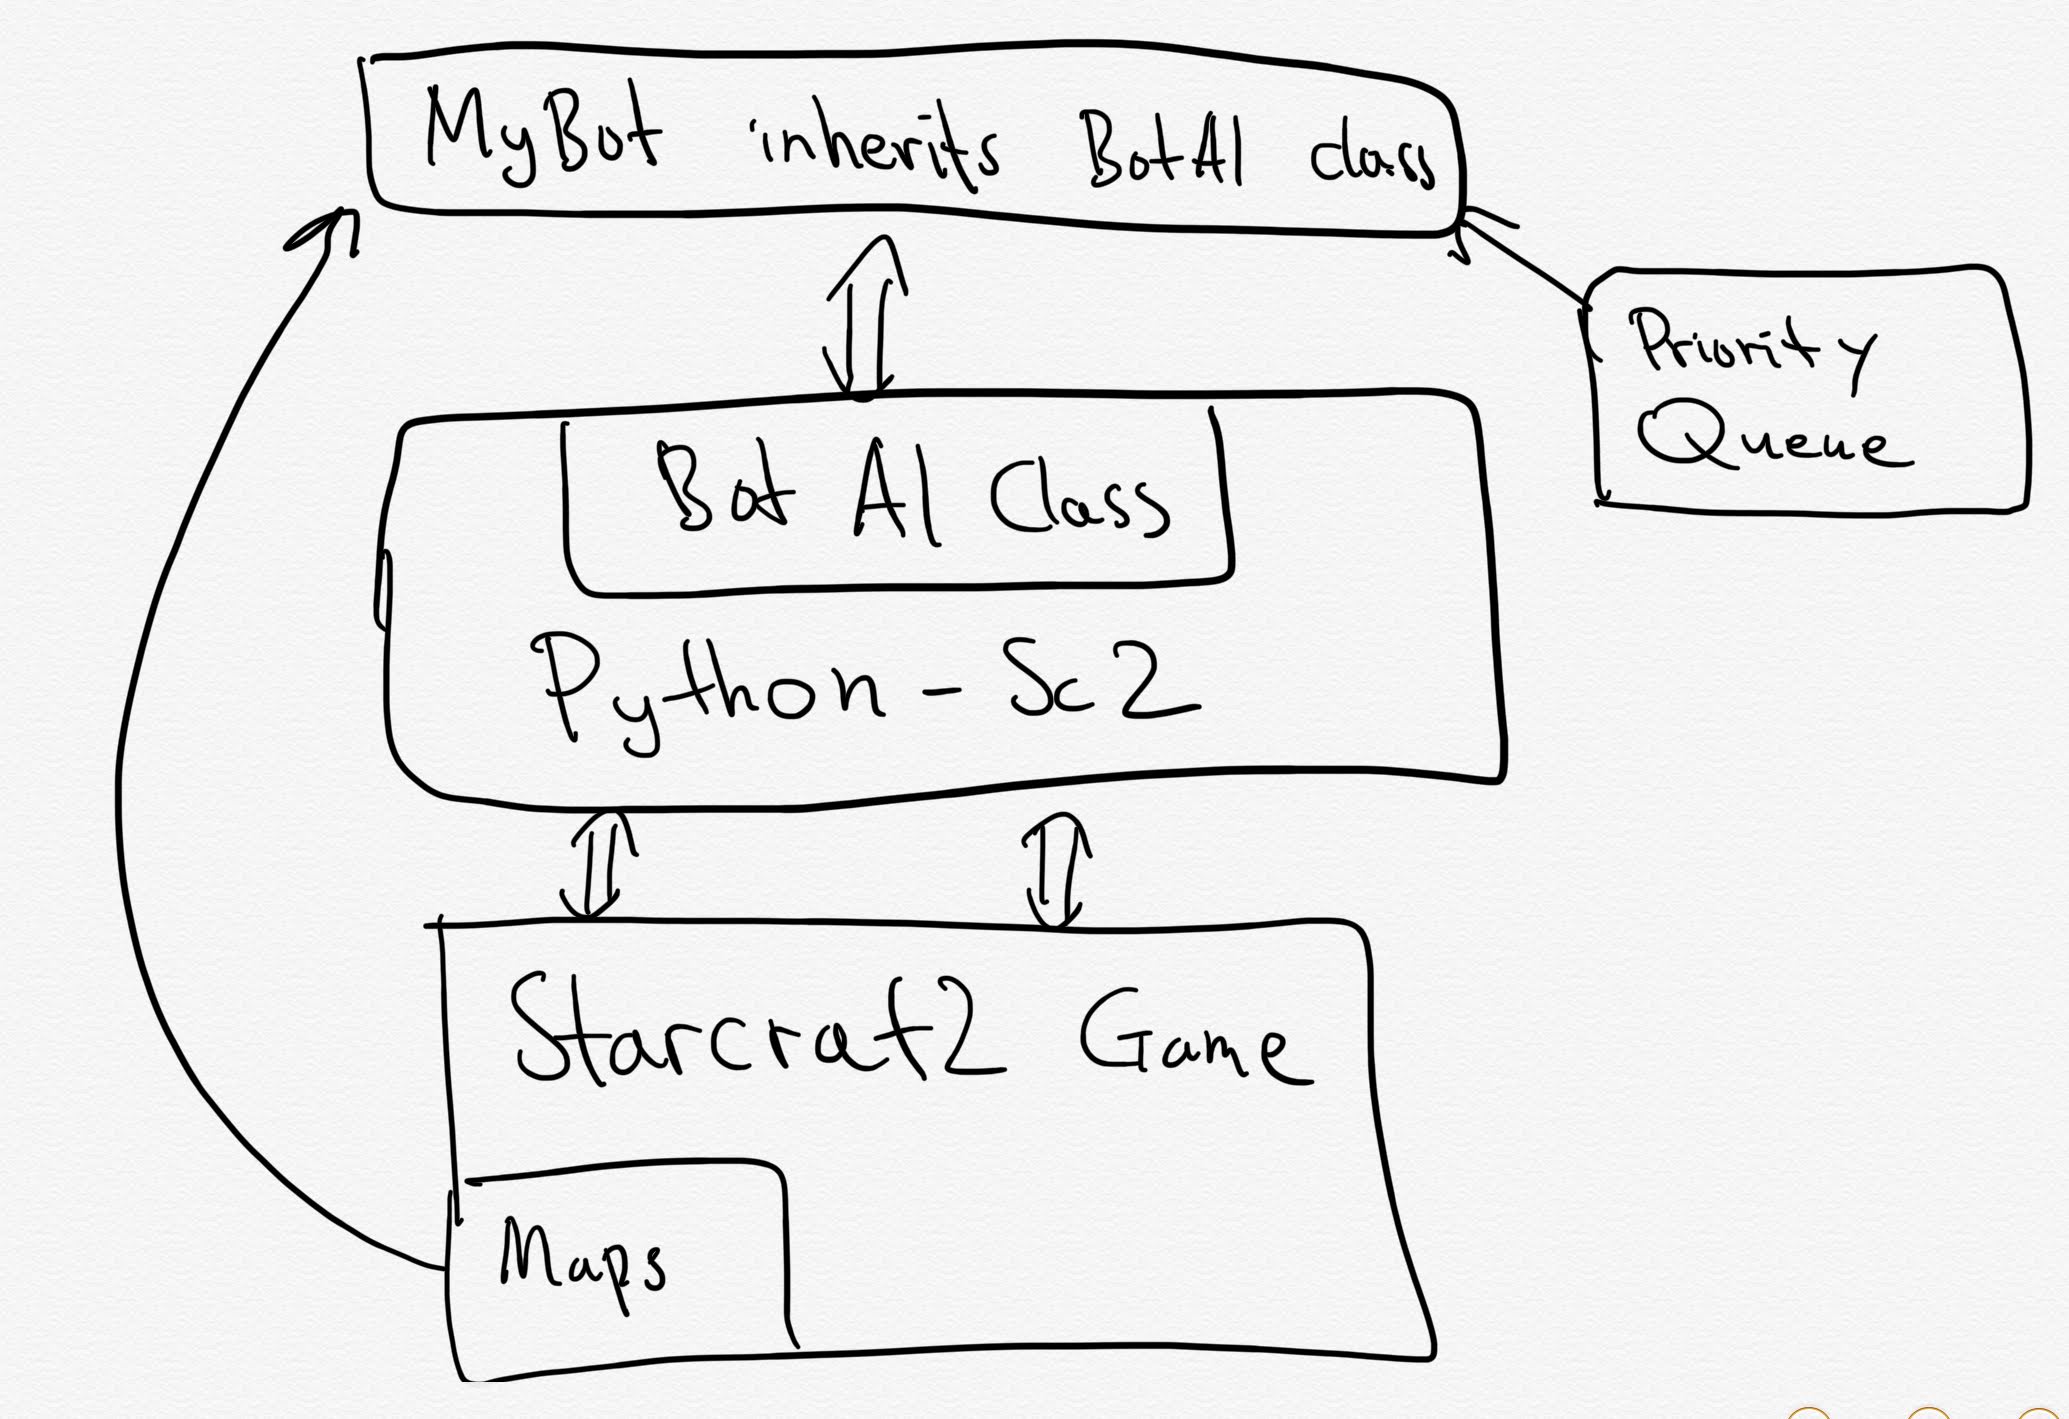 MyBot inherits BotAI class
Priority
Queue
Bot AI Class
Python-Sc2
Starcraft2 Game
Maps